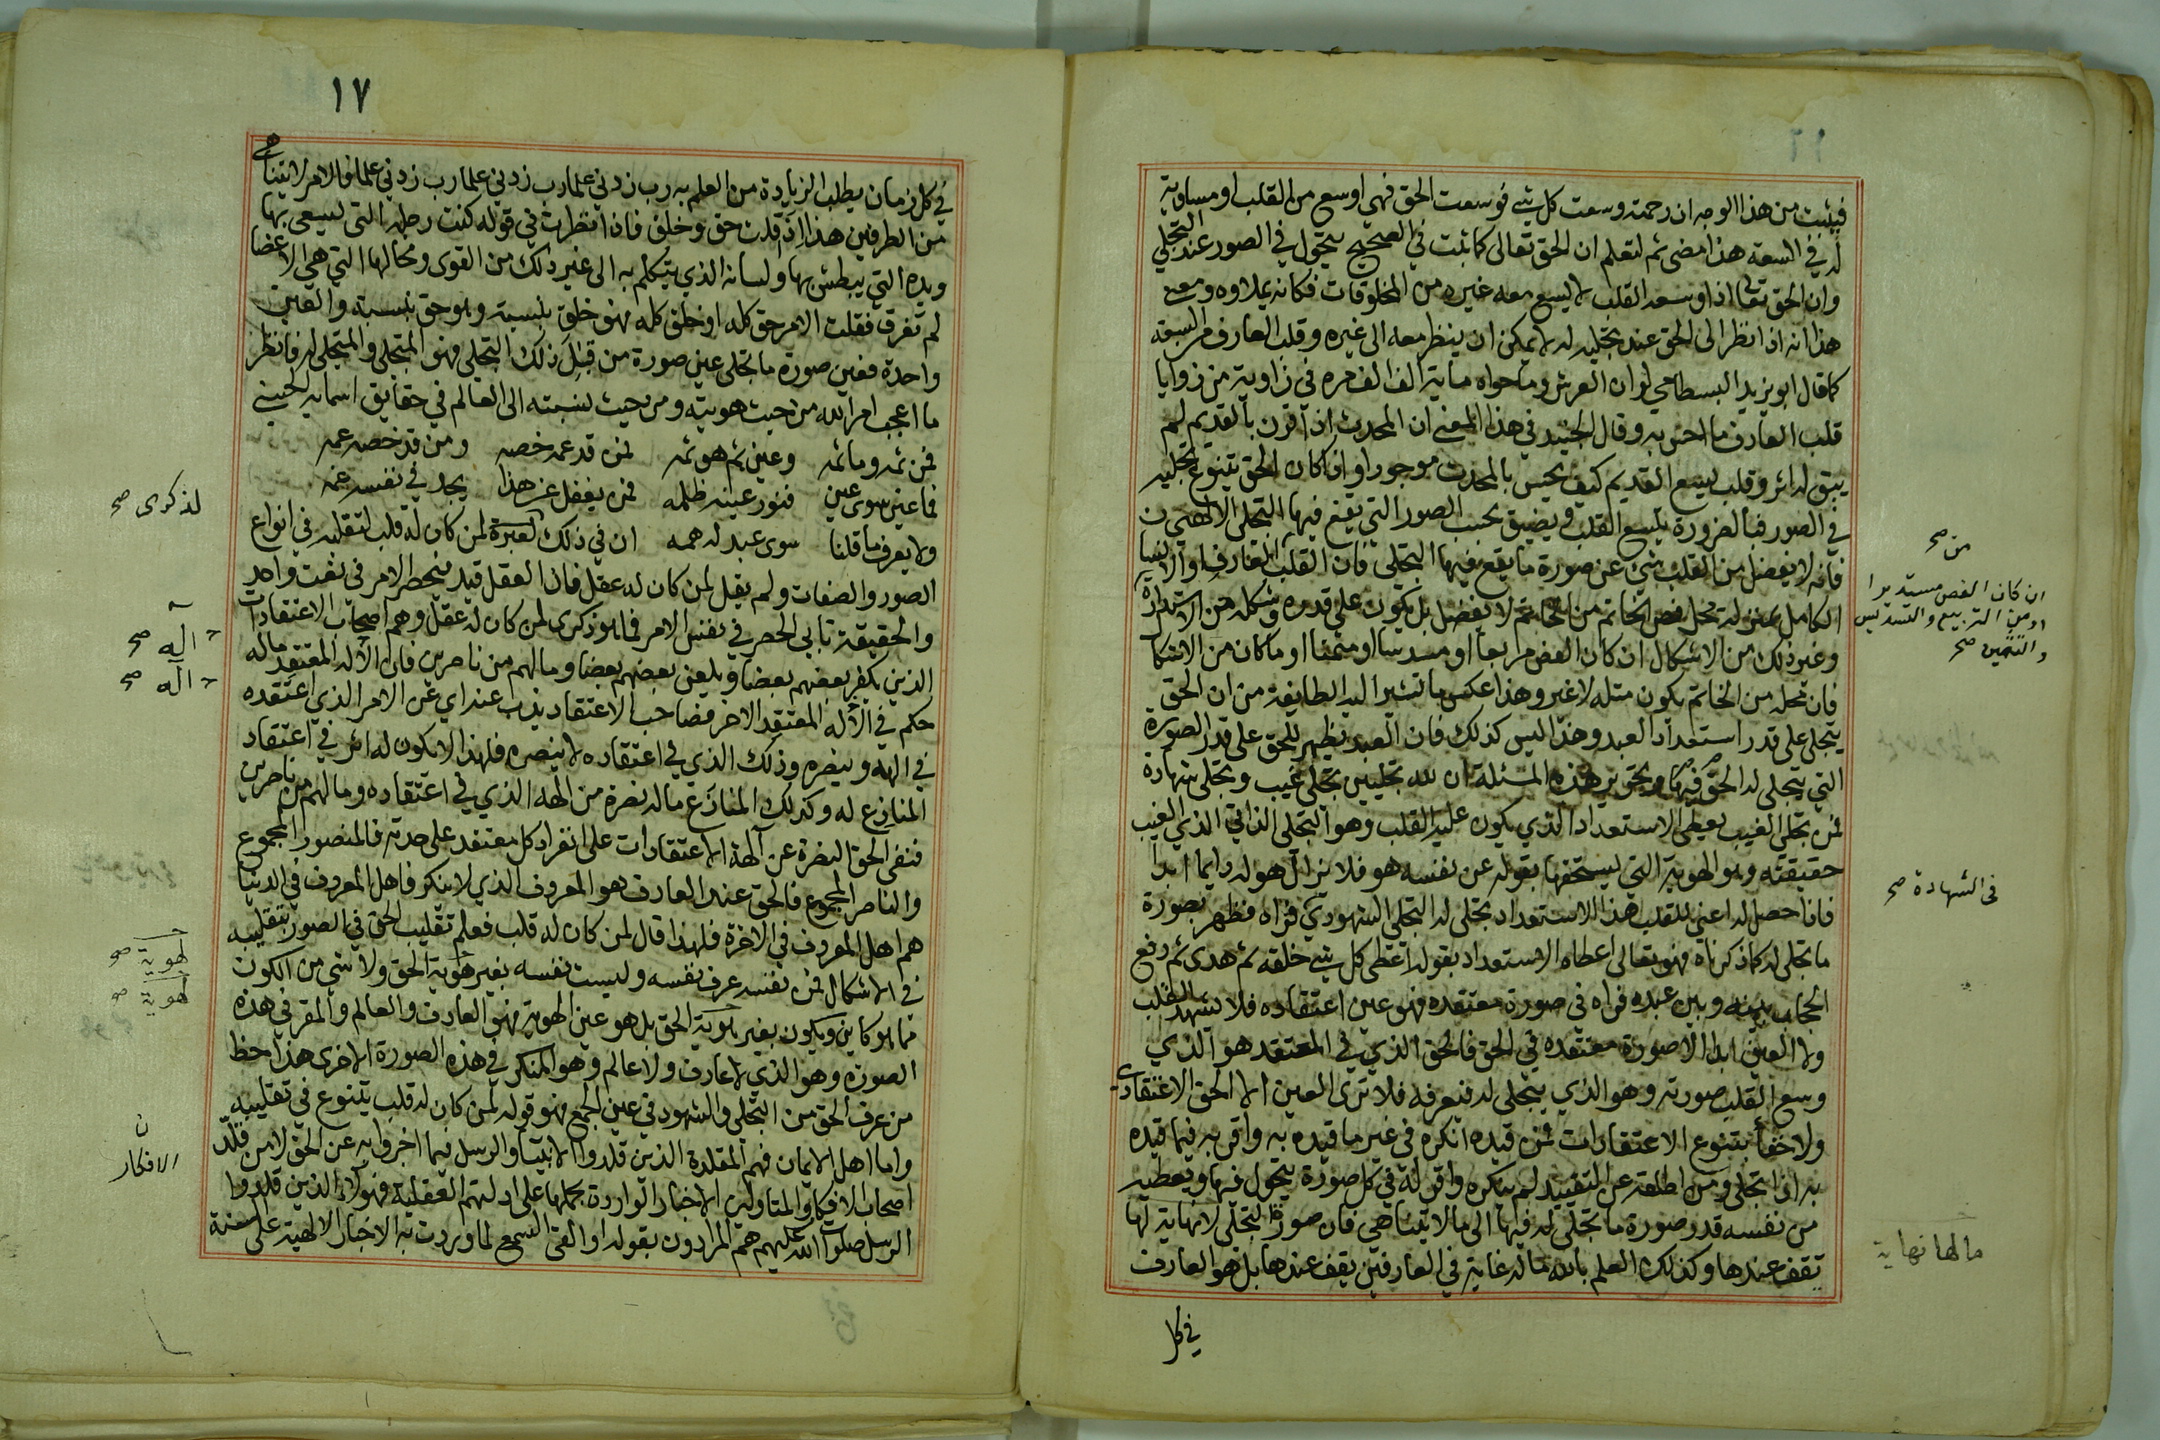 فيثبت من هذا الوجه ان رحمته وسعت كل شيء فوسعت الحق فهي اوسع من القلب او مساوية
له في السعة هذا مضى ثم لتعلم ان الحق تعالى كما ثبت في الصحيح يتحول في الصور عند التجلي
وان الحق تعالى اذا وسعه القلب لا يسع معه غيره من المخلوقات فكانه يملاوه ومعنى
هذا انه اذا نظر الى الحق عند تجليه له لا يمكن ان ينظر معه الى غيره وقلب العارف من السعة
كما قال ابو يزيد البسطامي لو ان العرش وما حواه ماية الف الف مرة في زاوية من زوايا
قلب العارف ما احس به وقال الجنيد في هذا المعنى ان المحدث اذا قرن بالقديم لم
يبق له اثر وقلب يسع القديم كيف يحس بالمحدث موجودا واذا كان الحق يتنوع تجليه
في الصور فبالضرورة يتسع القلب ويضيق بحسب الصور التي يقع فيها التجلي الالهي
فانه لا يفضل من القلب شيء عن صورة ما يقع فيها التجلي فان القلب من العارف او الانسان
الكامل بمنزلة محل فص الخاتم من الخاتم لا يفضل بل يكون على قدره وشكله من الاستدارة
وغير ذلك من الاشكال ان كان الفص مربعا او مسدسا او مثمنا او ما كان من الاشكال
فان محله من الخاتم يكون مثله لا غير وهذا عكس ما تشير اليه الطايفة من ان الحق
يتجلى على قدر استعداد العبد وهذا ليس كذلك فان العبد يظهر للحق على قدر الصورة
التي يتجلى له الحق فيها وتحرير هذه المسئلة ان لله تجليين تجلي غيب وتجلي شهادة
فمن تجلي الغيب يعطي الاستعداد الذي يكون عليه القلب وهو التجلي الذاتي الذي الغيب
حقيقته وهو الهوية التي يستحقها بقوله عن نفسه هو فلا يزال هو له دايما ابدا
فاذا حصل له اعني للقلب هذا الاستعداد تجلى له التجلي الشهودي فراه فظهر بصورة
ما تجلى له كما ذكرناه فهو تعالى اعطاه الاستعداد بقوله اعطى كل شيء خلقه ثم هدى ثم رفع
الحجاب بينه وبين عبده فراه في صورة معتقده فهو عين اعتقاده فلا يشهد القلب
ولا العين ابدا الا صورة معتقده في الحق فالحق الذي في المعتقد هو الذي
وسع القلب صورته وهو الذي يتجلى له فيعرفه فلا ترى العين الا الحق الاعتقادي
ولا خفا بتنوع الاعتقادات فمن قيده انكره في غير ما قيده به واقر به فيما قيده
به اذا تجلى ومن اطلقه عن التقييد لم ينكره واقر له في كل صورة يتحول فيها ويعطيه
من نفسه قدر صورة ما تجلى له فيها الى ما لا يتناهى فان صورة التجلي لا نهاية لها
تقف عندها وكذلك العلم بالله ماله غاية في العارفين يقف عندها بل هو العارف
في كل
من صح
ان كان الفص مستديرا
او من التربيع والتسديس
والتثمين صح
في الشهادة صح
ما لها نهاية
١٧
في كل زمان يطلب الزيادة من العلم به رب زدني علما رب زدني علما رب زدني علما فالامر لا يتناهى
من الطرفين هذا اذا قلت حق وخلق فاذا نظرت في قوله كنت رجله التي يسعى بها
ويده التي يبطش بها ولسانه الذي يتكلم به الى غير ذلك من القوى ومحالها التي هي الاعضا
لم تفرق فقلت الامر حق كله او خلق كله فهو خلق بنسبة وهو حق بنسبة والعين
واحدة فعين صورة ما تجلى عين صورة من قبل ذلك التجلي فهو المتجلي والمتجلى له فانظر
ما اعجب امر الله من حيث هويته ومن حيث نسبته الى العالم في حقايق اسمايه الحسنى
فمن ثمه وما ثمه وعين ثم هو ثمه فمن قد عمه خصه ومن قد خصه عمه
فما عين سوى عين فنور عينه ظلمه فمن يغفل عن هذا يجد في نفسه غمه
ولا يعرف ما قلنا سوى عبد له همه ان في ذلك لعبرة لمن كان له قلب لتقلبه في انواع
الصور والصفات ولم يقل لمن كان له عقل فان العقل قيد فيحصر الامر في نعت واحد
والحقيقة تابى الحصر في نفس الامر فما هو ذكرى لمن كان له عقل وهم اصحاب الاعتقادات
الذين يكفر بعضهم بعضا ويلعن بعضهم بعضا وما لهم من ناصرين فان الاله المعتقد ماله
حكم في الاله المعتقد الاخر فصاحب الاعتقاد يذب عنه اي عن الامر الذي اعتقده
في الهه وينصره وذلك الذي في اعتقاده لا ينصره فلهذا لا يكون له اثر في اعتقاد
المنازع له وكذلك المنازع ماله نصرة من الهه الذي في اعتقاده وما لهم من ناصرين
فنفى الحق النصرة عن آلهة الاعتقادات على انفراد كل معتقد على حدته فالمنصور المجموع
والناصر المجموع فالحق عند العارف هو المعروف الذي لا ينكر فاهل المعروف في الدنيا
هم اهل المعروف في الاخرة فلهذا قال لمن كان له قلب فعلم تقليب الحق في الصور بتقليبه
في الاشكال فمن نفسه عرف نفسه وليست نفسه بغير هوية الحق ولا شي من الكون
مما هو كاين ويكون بغير هوية الحق بل هو عين الهوية فهو العارف والعالم والمقر في هذه
الصورة وهو الذي لا عارف ولا عالم وهو المنكر في هذه الصورة الاخرى هذا حظ
من عرف الحق من التجلي والشهود في عين الجمع فهو قوله لمن كان له قلب يتنوع في تقليبه
واما اهل الايمان فهم المقلدة الذين قلدوا الانبيا والرسل فيما اخبروا به عن الحق لا من قلد
اصحاب الافكار والمتاولين الاخبار الواردة بحملها على ادلتهم العقلية فهولاء الذين قلدوا
الرسل صلوات الله عليهم هم المرادون بقوله او القى السمع لما وردت به الاخبار الالهية على السنة
لذكرى صح
اله صح
اله صح
لهوية صح
لهوية صح
الافكار